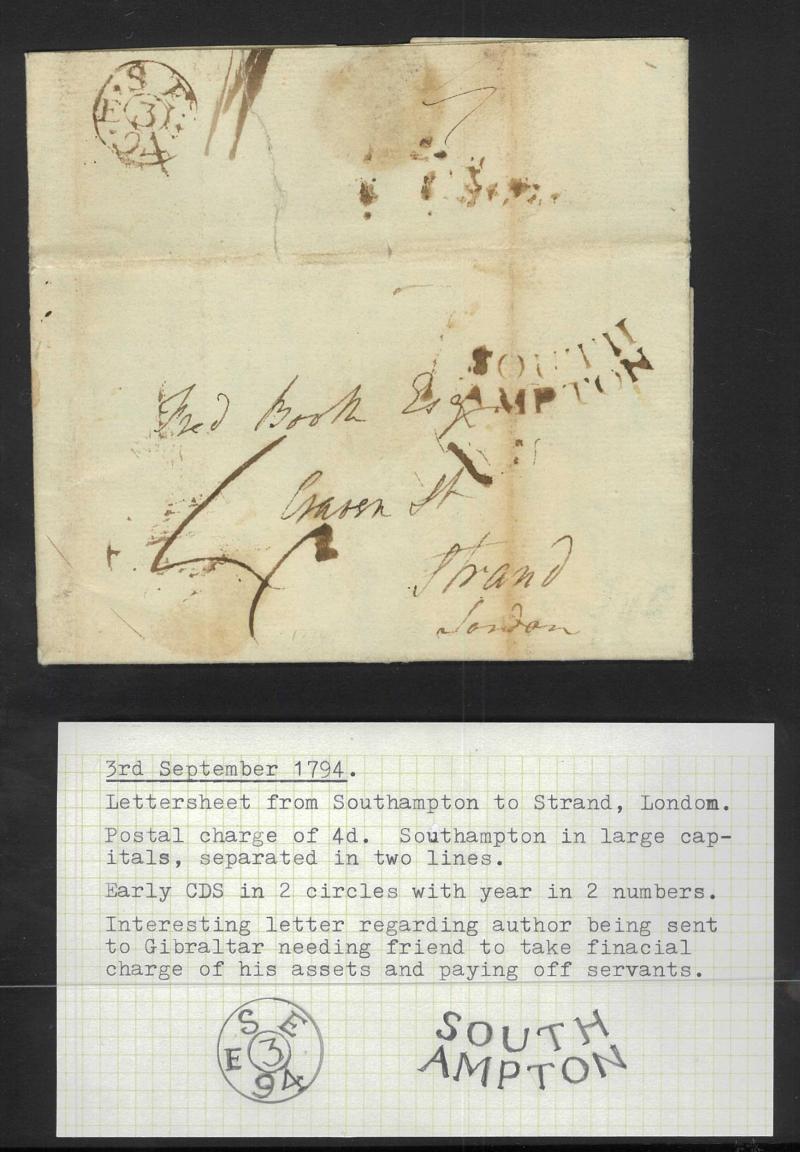 E·SE·
3
94
SOUTH
AMPTON
Fred Booth Esqr
Craven St
Strand
London
4
3rd September 1794.
Lettersheet from Southampton to Strand, Londom.
Postal charge of 4d.  Southampton in large cap-
itals, separated in two lines.
Early CDS in 2 circles with year in 2 numbers.
Interesting letter regarding author being sent
to Gibraltar needing friend to take finacial
charge of his assets and paying off servants.
E SE
3
94
SOUTH
AMPTON